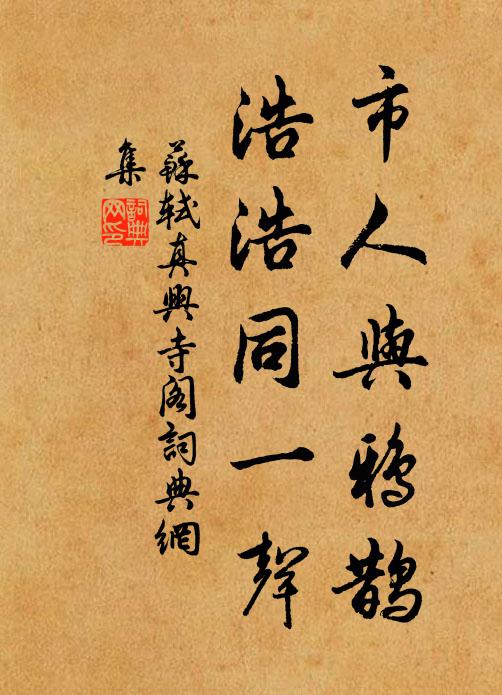 市人與鴉鵲
浩浩同一聲
蘇軾真興寺閣詞典網
集
詞典
网印